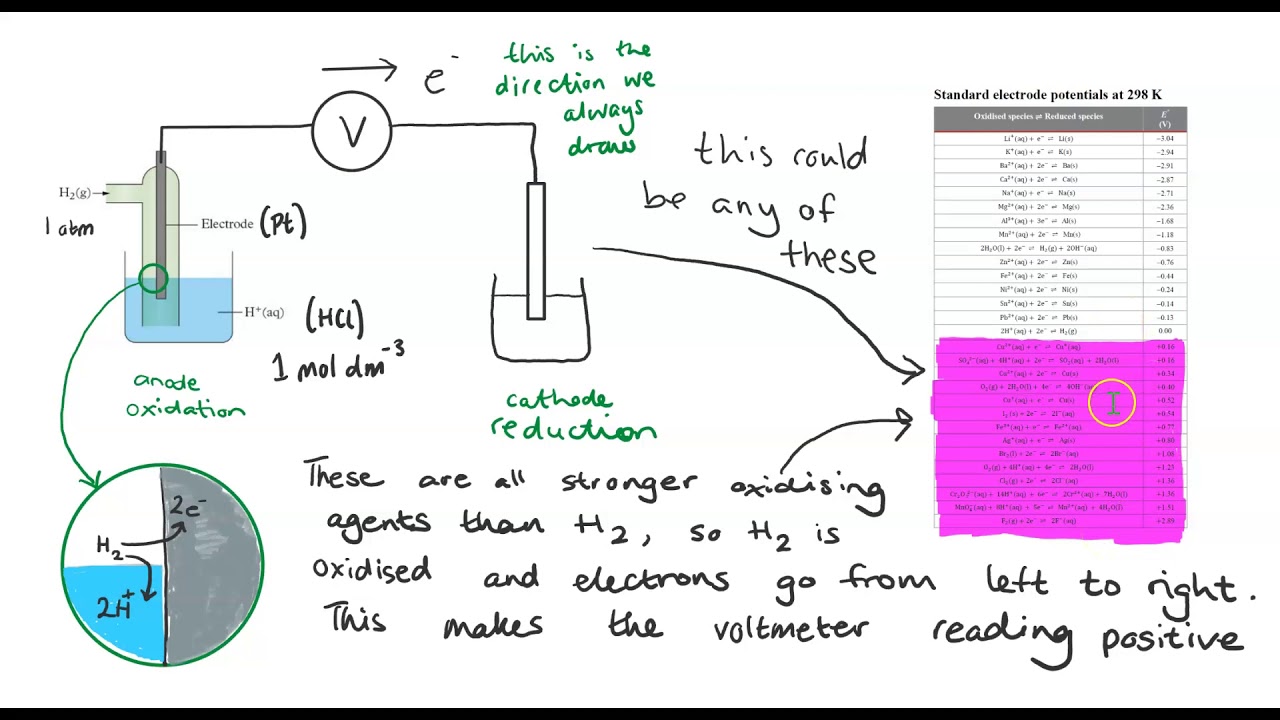 e⁻
this is the
direction we
always
draw
V
H₂(g)
1 atm
Electrode (Pt)
H⁺(aq)
(HCl)
1 mol dm⁻³
anode
oxidation
cathode
reduction
this could
be any of
these
Standard electrode potentials at 298 K
Oxidised species ⇌ Reduced species E° (V)
Li⁺(aq) + e⁻ ⇌ Li(s) −3.04
K⁺(aq) + e⁻ ⇌ K(s) −2.94
Ba²⁺(aq) + 2e⁻ ⇌ Ba(s) −2.91
Ca²⁺(aq) + 2e⁻ ⇌ Ca(s) −2.87
Na⁺(aq) + e⁻ ⇌ Na(s) −2.71
Mg²⁺(aq) + 2e⁻ ⇌ Mg(s) −2.36
Al³⁺(aq) + 3e⁻ ⇌ Al(s) −1.68
Mn²⁺(aq) + 2e⁻ ⇌ Mn(s) −1.18
2H₂O(l) + 2e⁻ ⇌ H₂(g) + 2OH⁻(aq) −0.83
Zn²⁺(aq) + 2e⁻ ⇌ Zn(s) −0.76
Fe²⁺(aq) + 2e⁻ ⇌ Fe(s) −0.44
Ni²⁺(aq) + 2e⁻ ⇌ Ni(s) −0.24
Sn²⁺(aq) + 2e⁻ ⇌ Sn(s) −0.14
Pb²⁺(aq) + 2e⁻ ⇌ Pb(s) −0.13
2H⁺(aq) + 2e⁻ ⇌ H₂(g) 0.00
Cu²⁺(aq) + e⁻ ⇌ Cu⁺(aq) +0.16
SO₄²⁻(aq) + 4H⁺(aq) + 2e⁻ ⇌ SO₂(aq) + 2H₂O(l) +0.16
Cu²⁺(aq) + 2e⁻ ⇌ Cu(s) +0.34
O₂(g) + 2H₂O(l) + 4e⁻ ⇌ 4OH⁻(aq) +0.40
Cu⁺(aq) + e⁻ ⇌ Cu(s) +0.52
I₂(s) + 2e⁻ ⇌ 2I⁻(aq) +0.54
Fe³⁺(aq) + e⁻ ⇌ Fe²⁺(aq) +0.77
Ag⁺(aq) + e⁻ ⇌ Ag(s) +0.80
Br₂(l) + 2e⁻ ⇌ 2Br⁻(aq) +1.08
O₂(g) + 4H⁺(aq) + 4e⁻ ⇌ 2H₂O(l) +1.23
Cl₂(g) + 2e⁻ ⇌ 2Cl⁻(aq) +1.36
Cr₂O₇²⁻(aq) + 14H⁺(aq) + 6e⁻ ⇌ 2Cr³⁺(aq) + 7H₂O(l) +1.36
MnO₄⁻(aq) + 8H⁺(aq) + 5e⁻ ⇌ Mn²⁺(aq) + 4H₂O(l) +1.51
F₂(g) + 2e⁻ ⇌ 2F⁻(aq) +2.89
2e⁻
H₂
2H⁺
These are all stronger oxidising
agents than H₂, so H₂ is
oxidised and electrons go from left to right.
This makes the voltmeter reading positive